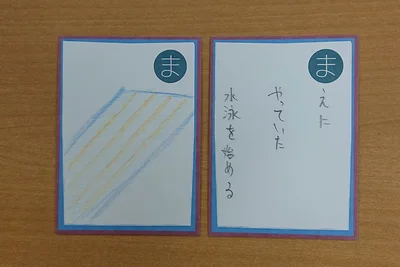 ま
ま
えに
やっていた
水泳を始める